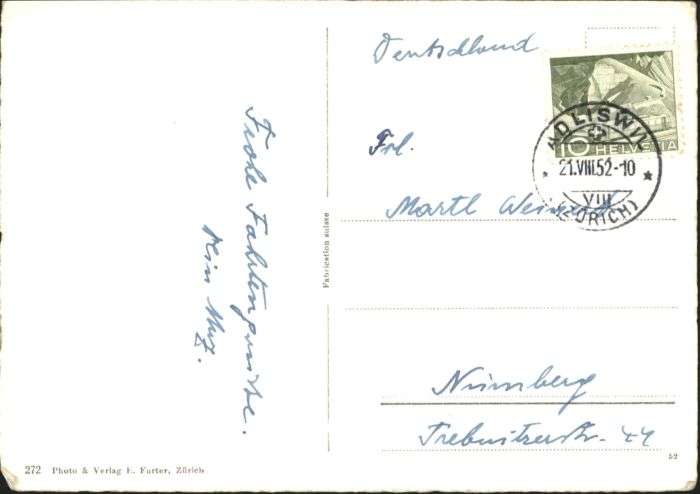 Deutschland
10 HELVETIA
ADLISWIL
21.VIII.52-10
VIII
(ZÜRICH)
Frl.
Martl
Nürnberg
Trebnitzerstr. 44
Frohe Fahrtengrüße.
Fabrication suisse
272 Photo & Verlag E. Furter, Zürich
52